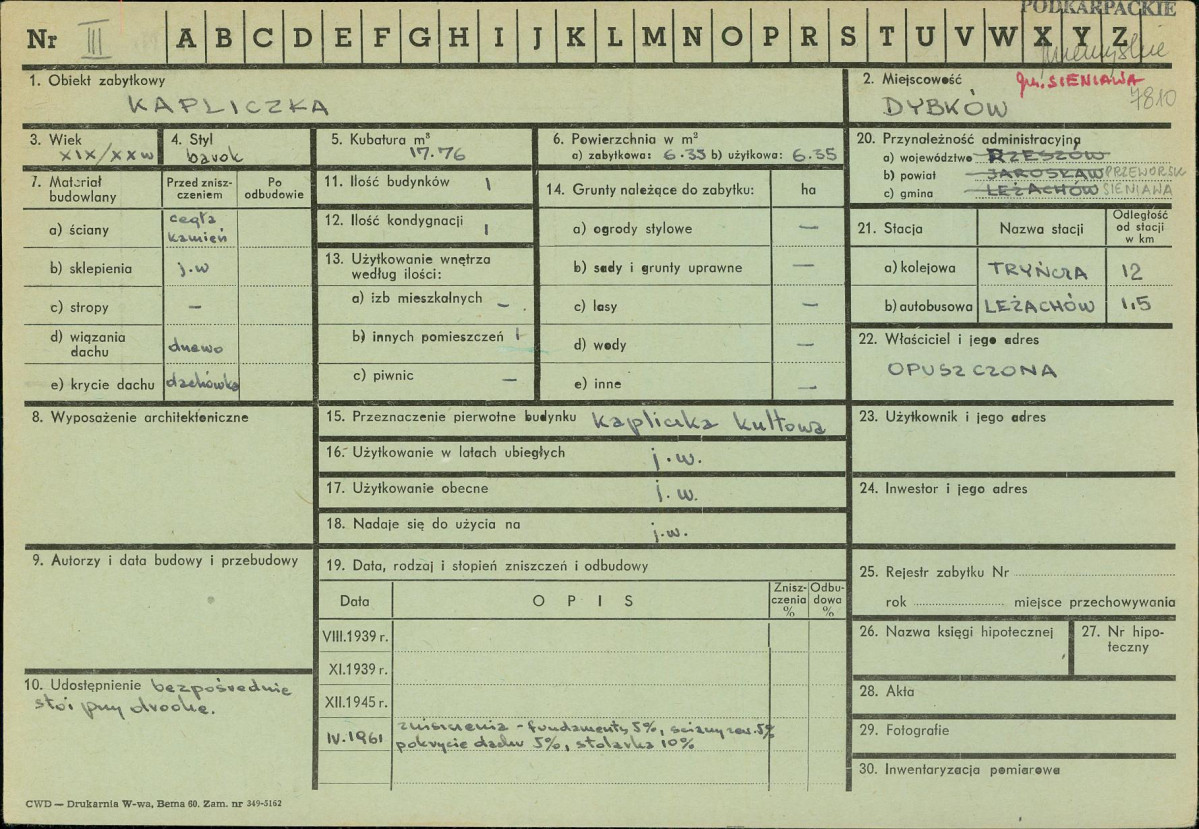 PODKARPACKIE
Nr III A B C D E F G H I J K L M N O P R S T U V W X Y Z
przemyskie
1. Obiekt zabytkowy
KAPLICZKA
2. Miejscowość gm. SIENIAWA
DYBKÓW 7810
3. Wiek
XIX/XX w
4. Styl
barok
5. Kubatura m³
17.76
6. Powierzchnia w m²
a) zabytkowa: 6.35 b) użytkowa: 6.35
20. Przynależność administracyjna
a) województwo RZESZÓW
b) powiat JAROSŁAW PRZEWORSK
c) gmina LEŻACHÓW SIENIAWA
7. Materiał budowlany
Przed zniszczeniem
Po odbudowie
a) ściany cegła kamień
b) sklepienia j.w
c) stropy —
d) wiązania dachu drewo
e) krycie dachu dachówka
11. Ilość budynków 1
12. Ilość kondygnacji 1
13. Użytkowanie wnętrza według ilości:
a) izb mieszkalnych —
b) innych pomieszczeń 1
c) piwnic —
14. Grunty należące do zabytku: ha
a) ogrody stylowe —
b) sady i grunty uprawne —
c) lasy —
d) wody —
e) inne —
21. Stacja
Nazwa stacji
Odległość od stacji w km
a) kolejowa TRYŃCZA 12
b) autobusowa LEŻACHÓW 1,5
22. Właściciel i jego adres
OPUSZCZONA
8. Wyposażenie architektoniczne
15. Przeznaczenie pierwotne budynku kapliczka kultowa
16. Użytkowanie w latach ubiegłych j.w.
17. Użytkowanie obecne j.w.
18. Nadaje się do użycia na j.w.
23. Użytkownik i jego adres
24. Inwestor i jego adres
9. Autorzy i data budowy i przebudowy
19. Data, rodzaj i stopień zniszczeń i odbudowy
Data
OPIS
Zniszczenia %
Odbudowa %
VIII.1939 r.
XI.1939 r.
XII.1945 r.
IV.1961 zniszczenia - fundamenty 5%, ściany zew. 5%
pokrycie dachu 5%, stolarka 10%
25. Rejestr zabytku Nr
rok miejsce przechowywania
26. Nazwa księgi hipotecznej
27. Nr hipoteczny
10. Udostępnienie bezpośrednie
stoi przy drodze.
28. Akta
29. Fotografie
30. Inwentaryzacja pomiarowa
CWD — Drukarnia W-wa, Bema 60. Zam. nr 349-5162